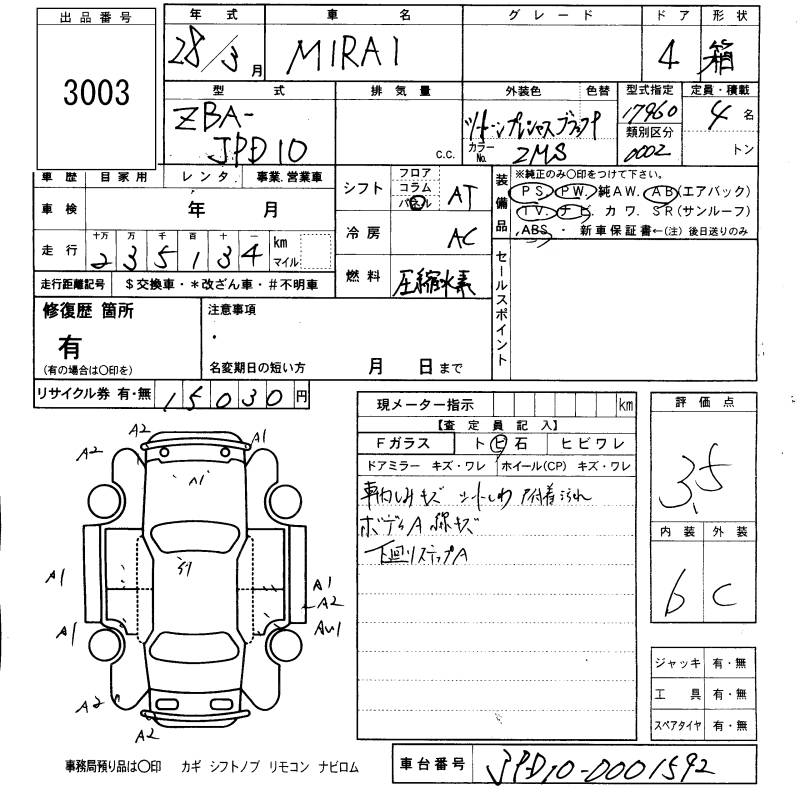 出品番号
3003
年式 車名 グレード ドア 形状
28/3月 MIRAI 4 箱
型式 排気量 外装色 色替 型式指定 定員・積載
ZBA-JPD10 C.C. カラーNo. 2MS 17960 類別区分 0002 4名 トン
車歴 自家用 レンタ. 事業.営業車
車検 年 月
走行 十万 万 千 百 十 一 km マイル
235134
走行距離記号 $交換車・*改ざん車・#不明車
シフト フロア コラム パネル AT
冷房 AC
燃料 圧縮水素
装備品 ※純正のみ〇印をつけて下さい。
PS. PW. 純AW. AB(エアバック)
TV. ナビ. カワ. SR(サンルーフ)
ABS. 新車保証書←(注)後日送りのみ
セールスポイント
修復歴 箇所
有
(有の場合は〇印を)
注意事項
名変期日の短い方 月 日まで
リサイクル券 有・無 15030円
現メーター指示 km
【査定員記入】
Fガラス トビ石 ヒビワレ
ドアミラー キズ・ワレ ホイール(CP) キズ・ワレ
シートしわ
ボディA 線キズ
下回りステップA
評価点
3.5
内装 外装
6 C
A2 A1
A2
A1
A1 A1
A2
A1
A2 A2
A2
ジャッキ 有・無
工具 有・無
スペアタイヤ 有・無
事務局預り品は〇印 カギ シフトノブ リモコン ナビロム
車台番号 JPD10-0001592